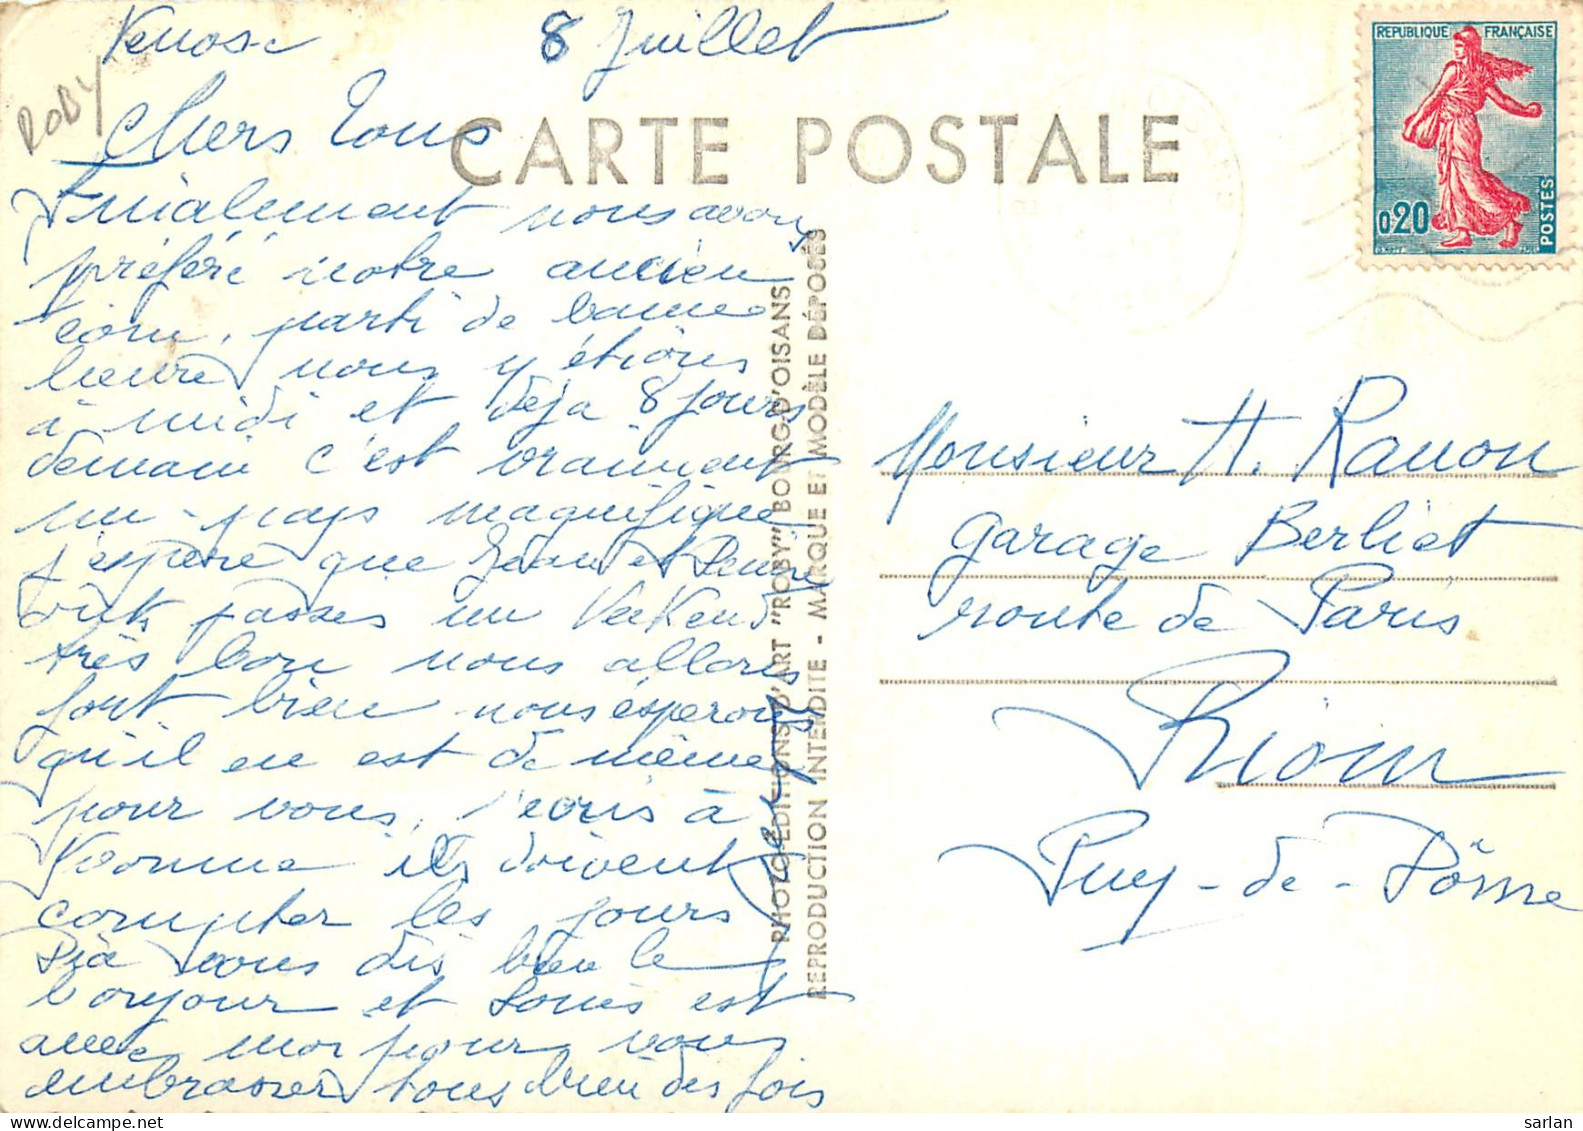 Venosc 8 Juillet
ROBY
Chers Tous
CARTE POSTALE
REPUBLIQUE FRANÇAISE
0,20
POSTES
Finialement nous avons
préféré notre ancien
coin, parti de bonne
heure nous y étions
à midi et déja 8 jours
demain c'est vraiment
un pays magnifique
j'espère que Jean et
passes un Veekend
très bon nous allons
fort bien nous éspérons
qu'il en est de même
pour vous, j'écris à
Yvonne ils doivent
compter les jours
Pia vous dis bien le
bonjour et Louis est
avec moi pour vous
embrasser tous bien des fois
PHOTO-EDITIONS D'ART "ROBY" BOURG-D'OISANS
REPRODUCTION INTERDITE - MARQUE ET MODÈLE DÉPOSÉS
Monsieur H. Ranon
garage Berliet
route de Paris
Riom
Puy-de-Dôme
sarlan